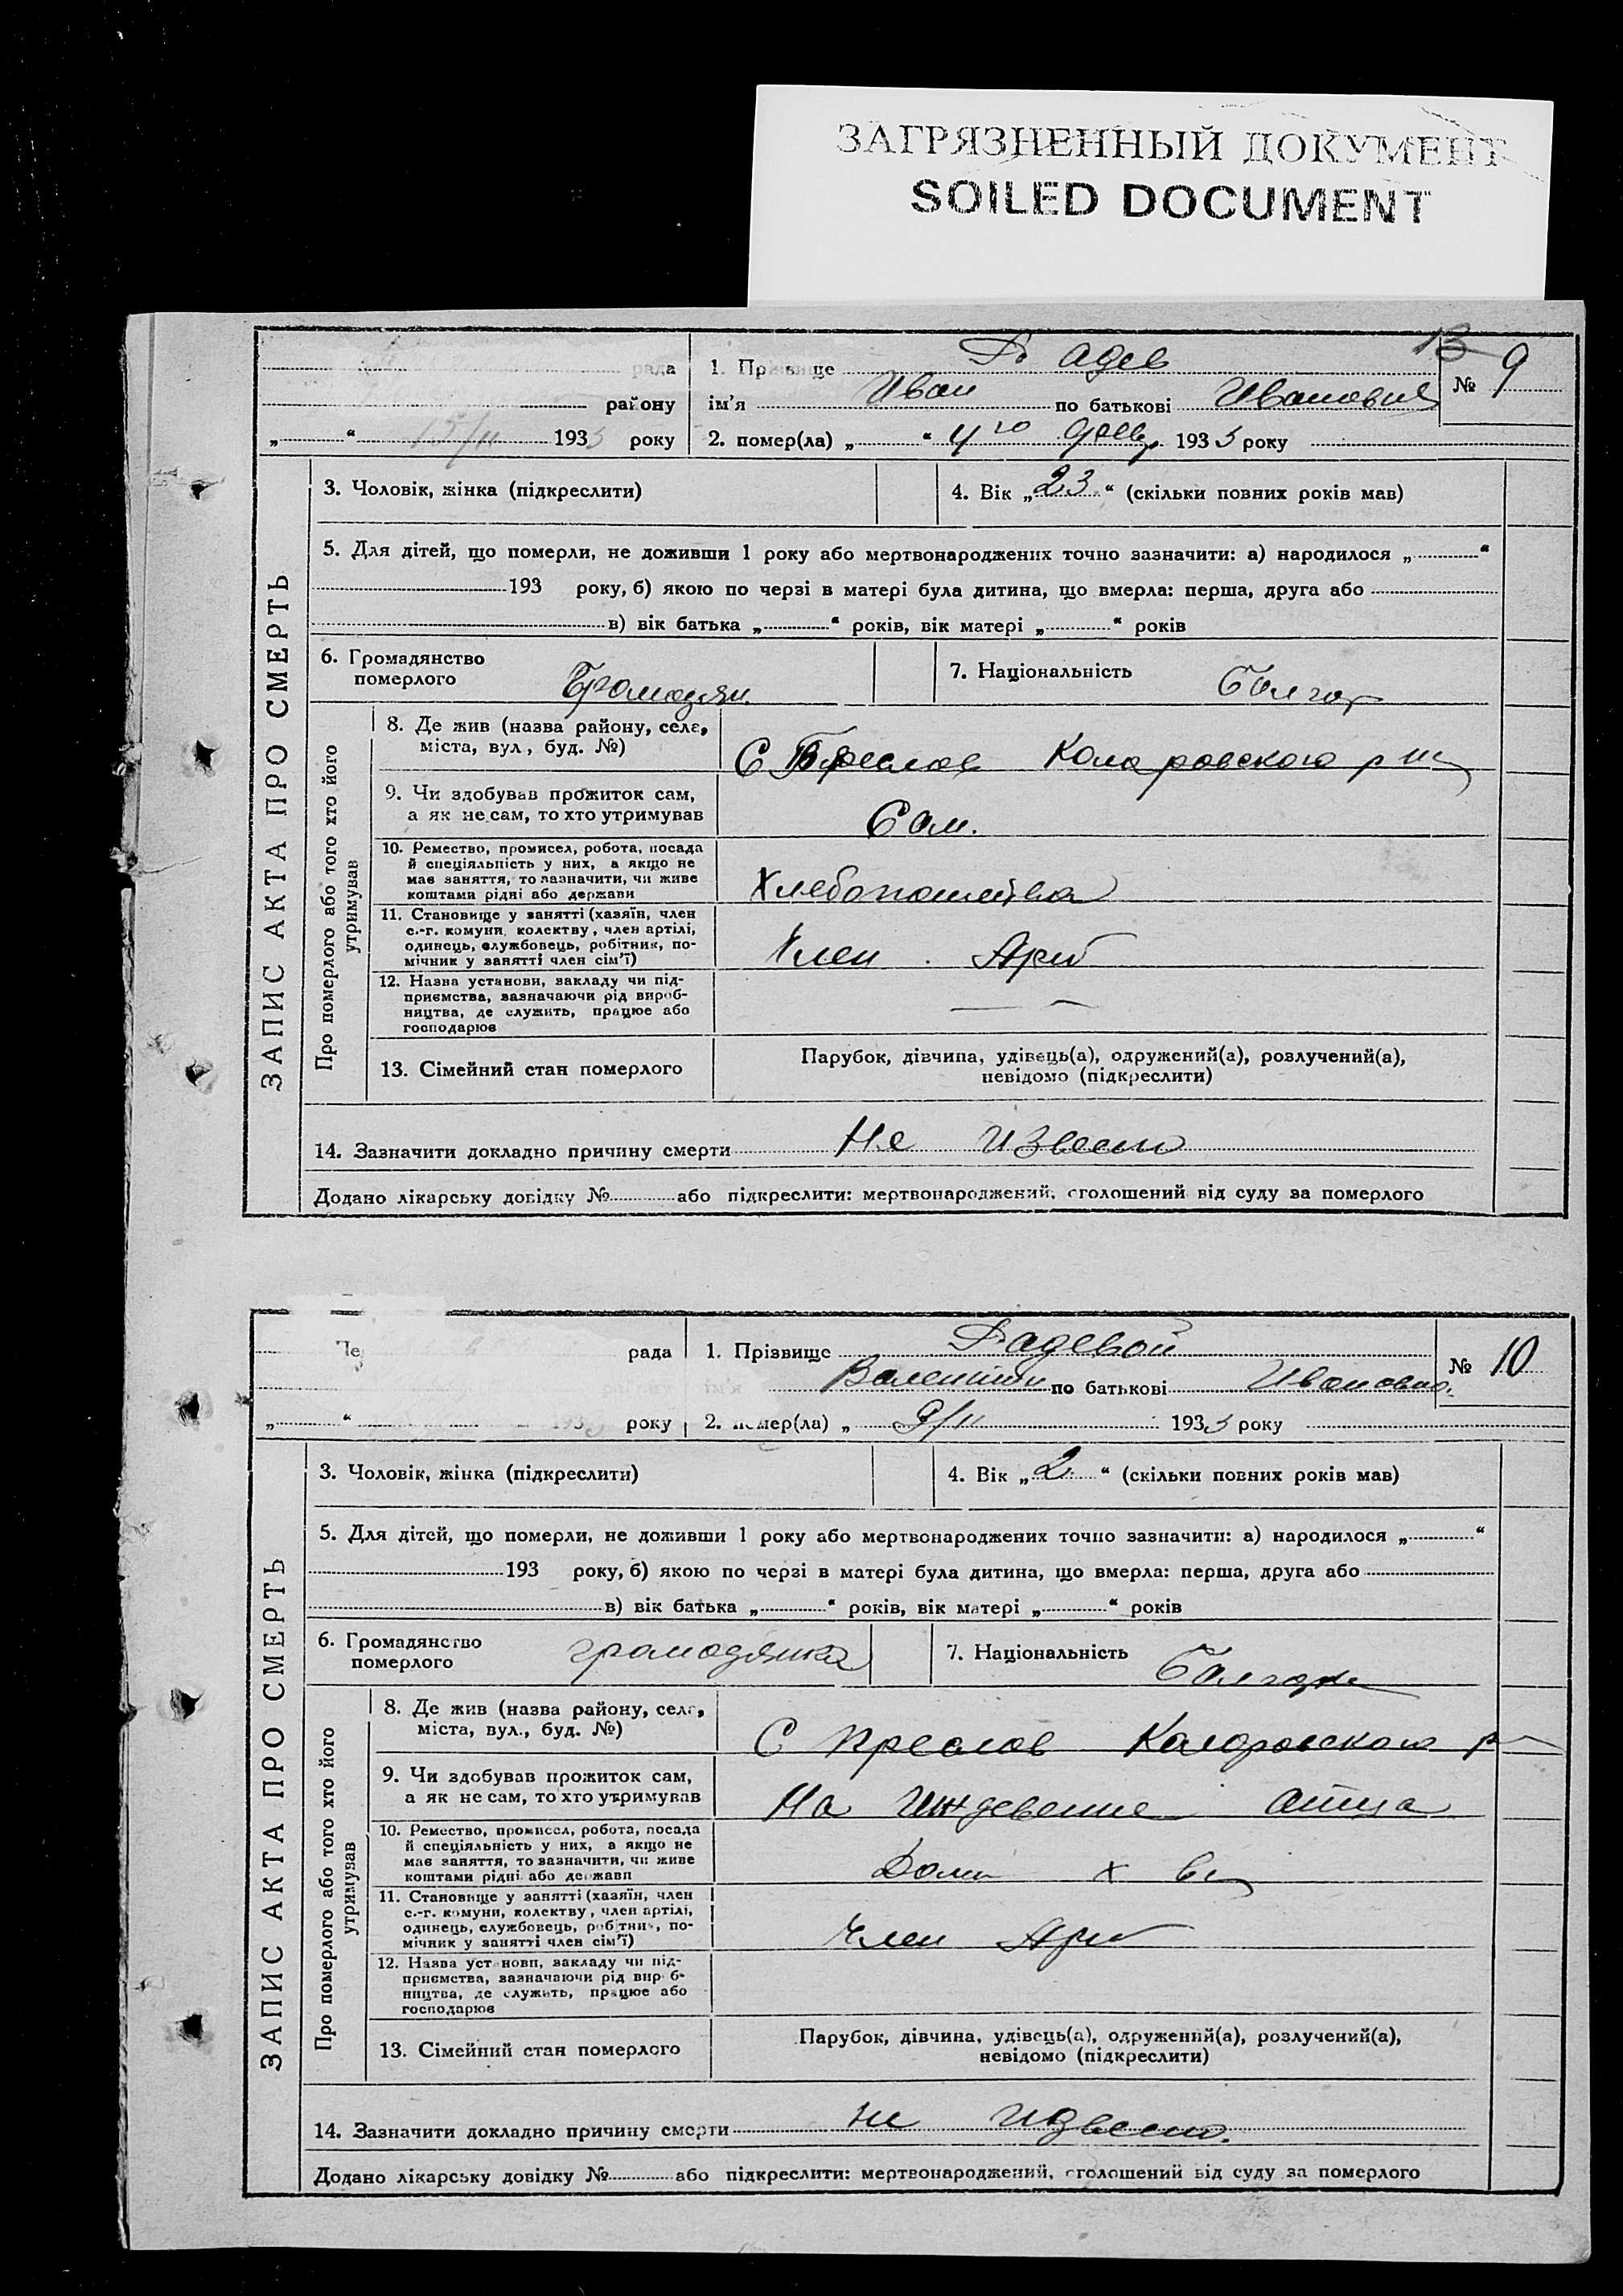 ЗАГРЯЗНЕННЫЙ ДОКУМЕНТ
SOILED DOCUMENT
рада
1. Прізвище Радев
№ 9
району
ім'я Иван по батькові Иванович
„ “ 15/II 1933 року
2. помер(ла) „ “ 4го февр 1933 року
ЗАПИС АКТА ПРО СМЕРТЬ
3. Чоловік, жінка (підкреслити)
4. Вік „23“ (скільки повних років мав)
5. Для дітей, що померли, не доживши 1 року або мертвонароджених точно зазначити: а) народилося „ “
193 року, б) якою по черзі в матері була дитина, що вмерла: перша, друга або
в) вік батька „ “ років, вік матері „ “ років
6. Громадянство
померлого Громадян.
7. Національність Болгар
Про померлого або того хто його
утримував
8. Де жив (назва району, села,
міста, вул., буд. №)
С Преслав Коларовского р
9. Чи здобував прожиток сам,
а як не сам, то хто утримував
Сам.
10. Ремество, промисел, робота, посада
й спеціяльність у них, а якщо не
має заняття, то зазначити, чи живе
коштами рідні або держави
Хлебопашества
11. Становище у занятті (хазяїн, член
с.-г. комуни, колективу, член артілі,
одинець, службовець, робітник, по-
мічник у занятті член сім'ї)
Член Арт
12. Назва установи, закладу чи під-
приємства, зазначаючи рід вироб-
ництва, де служить, працює або
господарює
13. Сімейний стан померлого
Парубок, дівчина, удівець(а), одружений(а), розлучений(а),
невідомо (підкреслити)
14. Зазначити докладно причину смерти Не извесно
Додано лікарську довідку № або підкреслити: мертвонароджений, оголошений від суду за померлого
рада
1. Прізвище Радевой
№ 10
ім'я Валентин по батькові Ивановна.
„ “ 1933 року
2. помер(ла) „ 9/II 1933 року
ЗАПИС АКТА ПРО СМЕРТЬ
3. Чоловік, жінка (підкреслити)
4. Вік „2“ (скільки повних років мав)
5. Для дітей, що померли, не доживши 1 року або мертвонароджених точно зазначити: а) народилося „ “
193 року, б) якою по черзі в матері була дитина, що вмерла: перша, друга або
в) вік батька „ “ років, вік матері „ “ років
6. Громадянство
померлого громадянка
7. Національність Болгарка
Про померлого або того хто його
утримував
8. Де жив (назва району, села,
міста, вул., буд. №)
С Преслав Коларовского р
9. Чи здобував прожиток сам,
а як не сам, то хто утримував
На иждевение отца
10. Ремество, промисел, робота, посада
й спеціяльність у них, а якщо не
має заняття, то зазначити, чи живе
коштами рідні або держави
Дом х
11. Становище у занятті (хазяїн, член
с.-г. комуни, колективу, член артілі,
одинець, службовець, робітник, по-
мічник у занятті член сім'ї)
Член Арт
12. Назва установи, закладу чи під-
приємства, зазначаючи рід вироб-
ництва, де служить, працює або
господарює
13. Сімейний стан померлого
Парубок, дівчина, удівець(а), одружений(а), розлучений(а),
невідомо (підкреслити)
14. Зазначити докладно причину смерти не извесно.
Додано лікарську довідку № або підкреслити: мертвонароджений, оголошений від суду за померлого